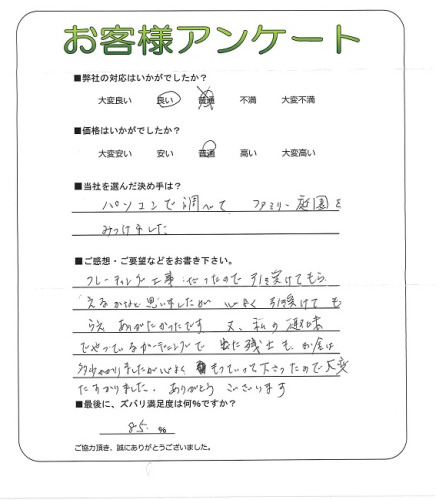 お客様アンケート
■弊社の対応はいかがでしたか？
大変良い 良い 普通 不満 大変不満
■価格はいかがでしたか？
大変安い 安い 普通 高い 大変高い
■当社を選んだ決め手は？
パソコンで調べて ファミリー庭園を
みつけました
■ご感想・ご要望などをお書き下さい。
フレーティング工事だったので 引き受けてもら
えるかなと思いましたが 心よく引受けても
らえ ありがたかったです 又、私の趣味
でやっているガーデニングで 出た残土も、お金は
多少かかりましたが心よく もっていって下さったので大変
たすかりました。ありがとう ございます
■最後に、ズバリ満足度は何%ですか？
85. %
ご協力頂き、誠にありがとうございました。